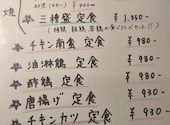 焼
三種盛 定食 ¥1,350-
チキン南蛮 定食 ¥980-
油淋鶏 定食 ¥980-
酢鶏 定食 ¥980-
唐揚げ 定食 ¥930-
チキンカツ 定食 ¥930-